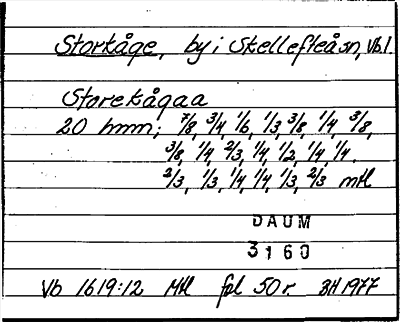 Storkåge, by i Skellefteå sn, Vb.l.
Storekågaa
20 hmn; 7/8, 3/4, 1/6, 1/3, 3/8, 1/4, 3/8,
3/8, 1/4, 2/3, 1/4, 1/2, 1/4, 1/4.
2/3, 1/3, 1/4, 1/4, 1/3, 2/3 mtl
DAUM
3160
Vb 1619:12 Mtl fol 50 r. BH 1977